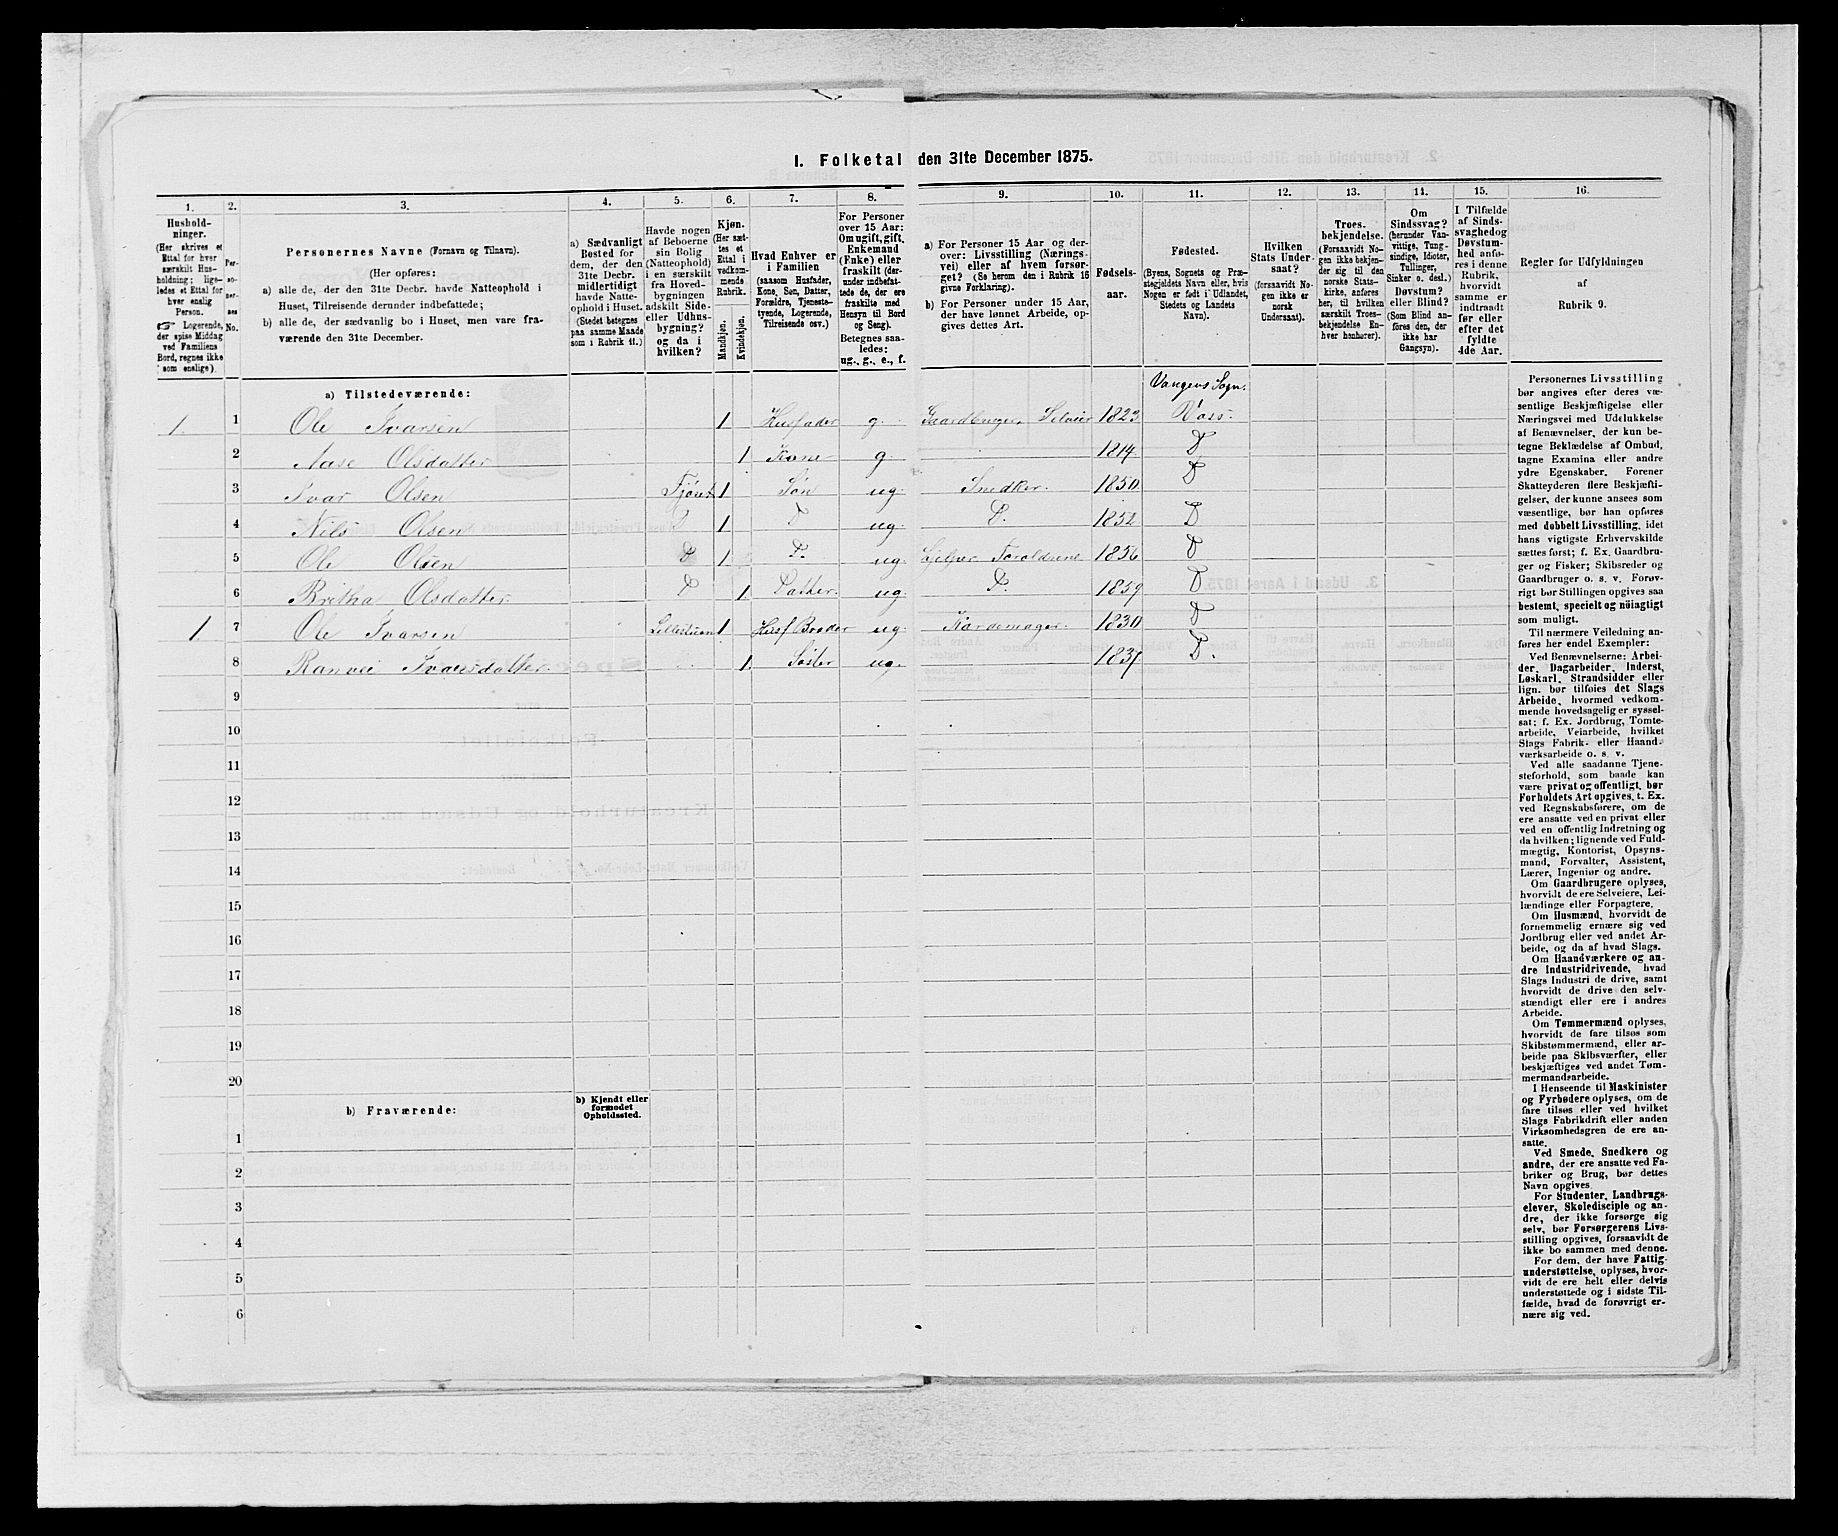 1. Folketal den 31te December 1875.
1. 2. 3. 4. 5. 6. 7. 8. 9. 10. 11. 12. 13. 14. 15. 16.
Hushold-
ninger.
(Her skrives et
Ettal for hver
særskilt Hus-
holdning; lige-
ledes et Ettal for
hver enslig
Person.
☞ Logerende,
der spise Middag
ved Familiens
Bord, regnes ikke
som enslige).
Per-
so-
ner-
nes
No.
Personernes Navne (Fornavn og Tilnavn).
(Her opføres:
a) alle de, der den 31te Decbr. havde Natteophold i
Huset, Tilreisende derunder indbefattede;
b) alle de, der sædvanlig bo i Huset, men vare fra-
værende den 31te December.
a) Sædvanligt
Bosted for
dem, der den
31te Decbr.
midlertidigt
havde Natte-
ophold i Huset.
(Stedet betegnes
paa samme Maade
som i Rubrik 11.)
Havde nogen
af Beboerne
sin Bolig
(Natteophold)
i en særskilt
fra Hoved-
bygningen
adskilt Side-
eller Udhus-
bygning?
og da i
hvilken?
Kjøn.
(Her sæt-
tes et
Ettal i
vedkom-
mende
Rubrik.
Mandkjøn.
Kvindekjøn.
Hvad Enhver er
i Familien
(saasom Husfader,
Kone, Søn, Datter,
Forældre, Tjeneste-
tyende, Logerende,
Tilreisende osv.)
For Personer
over 15 Aar:
Om ugift, gift,
Enkemand
(Enke) eller
fraskilt (der-
under indbefat-
tede de, der ere
fraskilte med
Hensyn til Bord
og Seng).
Betegnes saa-
ledes:
ug., g., e., f.
a) For Personer 15 Aar og der-
over: Livsstilling (Nærings-
vei) eller af hvem forsør-
get? (Se herom den i Rubrik 16
givne Forklaring).
b) For Personer under 15 Aar,
der have lønnet Arbeide, op-
gives dettes Art.
Fødsels-
aar.
Fødested.
(Byens, Sognets og Præ-
stegjeldets Navn eller, hvis
Nogen er født i Udlandet,
Stedets og Landets
Navn).
Hvilken
Stats Under-
saat?
(forsaavidt No-
gen ikke er
norsk
Undersaat).
Troes-
bekjendelse.
(Forsaavidt No-
gen ikke bekjen-
der sig til den
norske Stats-
kirke, anføres
her, til hvilken
særskilt Troes-
bekjendelse En-
hver henhører).
Om
Sindssvag?
(herunder Van-
vittige, Tung-
sindige, Idioter,
Tullinger,
Sinker o. desl.)
Døvstum?
eller Blind?
(Som Blind an-
føres den, der
ikke har
Gangsyn).
I Tilfælde
af Sinds-
svaghed og
Døvstum-
hed anfø-
res i denne
Rubrik,
hvorvidt
samme er
indtraadt
før eller
efter det
fyldte
4de Aar.
Regler for Udfyldningen
af
Rubrik 9.
a) Tilstedeværende:
Vangens Sogn.
1. 1 Ole Ivarsen 1 Husfader g. Gaardbruger, Selveier 1823 Voss.
2 Aase Olsdatter 1 Kone g 1814 D
3 Ivar Olsen Fjøset 1 Søn ug. Snedker. 1850 D
4 Nils Olsen D 1 D ug. D. 1852 D
5 Ole Olsen D 1 D. ug. hjelper Foraldrene 1856 D
6 Britha Olsdatter. D 1. Datter. ug. D. 1859 D
1 7 Ole Ivarsen 1 Husf Broder ug. Kardemager. 1830 D
8 Ranvei Ivarsdatter. 1. Søster ug. D.
9
10
11
12
13
14
15
16
17
18
19
20
b) Fraværende:
b) Kjendt eller
formodet
Opholdssted.
1
2
3
4
5
6
Personernes Livsstilling
bør angives efter deres væ-
sentlige Beskjæftigelse eller
Næringsvei med Udelukkelse
af Benævnelser, der kun be-
tegne Beklædelse af Ombud,
tagne Examina eller andre
ydre Egenskaber. Forener
Skatteyderen flere Beskjæfti-
gelser, der kunne ansees som
væsentlige, bør han opføres
med dobbelt Livsstilling, idet
hans vigtigste Erhvervskilde
sættes først; f. Ex. Gaardbru-
ger og Fisker; Skibsreder og
Gaardbruger o. s. v. Forøv-
rigt bør Stillingen opgives saa
bestemt, specielt og nöiagtigt
som muligt.
Til nærmere Veiledning an-
føres her endel Exempler:
Ved Benævnelserne: Arbei-
der, Dagarbeider, Inderst,
Løskarl, Strandsidder eller
lign. bør tilføies det Slags
Arbeide, hvormed vedkom-
mende hovedsagelig er syssel-
sat; f. Ex. Jordbrug, Tomte-
arbeide, Veiarbeide, hvilket
Slags Fabrik- eller Haand-
værksarbeide o. s. v.
Ved alle saadanne Tjene-
steforhold, som baade kan
være privat og offentligt, bør
Forholdets Art opgives, t. Ex.
ved Regnskabsførere, om de
ere ansatte ved en privat eller
ved en offentlig Indretning og
da hvilken; lignende ved Fuld-
mægtig, Kontorist, Opsyns-
mand, Forvalter, Assistent,
Lærer, Ingeniør og andre.
Om Gaardbrugere oplyses,
hvorvidt de ere Selveiere, Lei-
lændinge eller Forpagtere.
Om Husmænd, hvorvidt de
fornemmelig ernære sig ved
Jordbrug eller ved andet Ar-
beide, og da af hvad Slags.
Om Haandværkere og an-
dre Industridrivende, hvad
Slags Industri de drive, samt
hvorvidt de drive den selv-
stændigt eller ere i andres
Arbeide.
Om Tømmermænd oplyses,
hvorvidt de fare tilsøs som
Skibstømmermænd, eller ar-
beide paa Skibsværfter, eller
beskjæftiges ved andet Tøm-
mermandsarbeide.
I Henseende til Maskinister
og Fyrbødere oplyses, om de
fare tilsøs eller ved hvilket
Slags Fabrikdrift eller anden
Virksomhedsgren de ere an-
satte.
Ved Smede, Snedkere og
andre, der ere ansatte ved Fa-
briker og Brug, bør dettes
Navn opgives.
For Studenter, Landbrugs-
elever, Skoledisciple og an-
dre, der ikke forsørge sig
selv, bør Forsørgerens Livs-
stilling opgives, forsaavidt de
ikke bo sammen med denne.
For dem, der have Fattig-
understøttelse, oplyses, hvor-
vidt de ere helt eller delvis
understøttede og i sidste Til-
fælde, hvad de forøvrigt er-
nære sig ved.